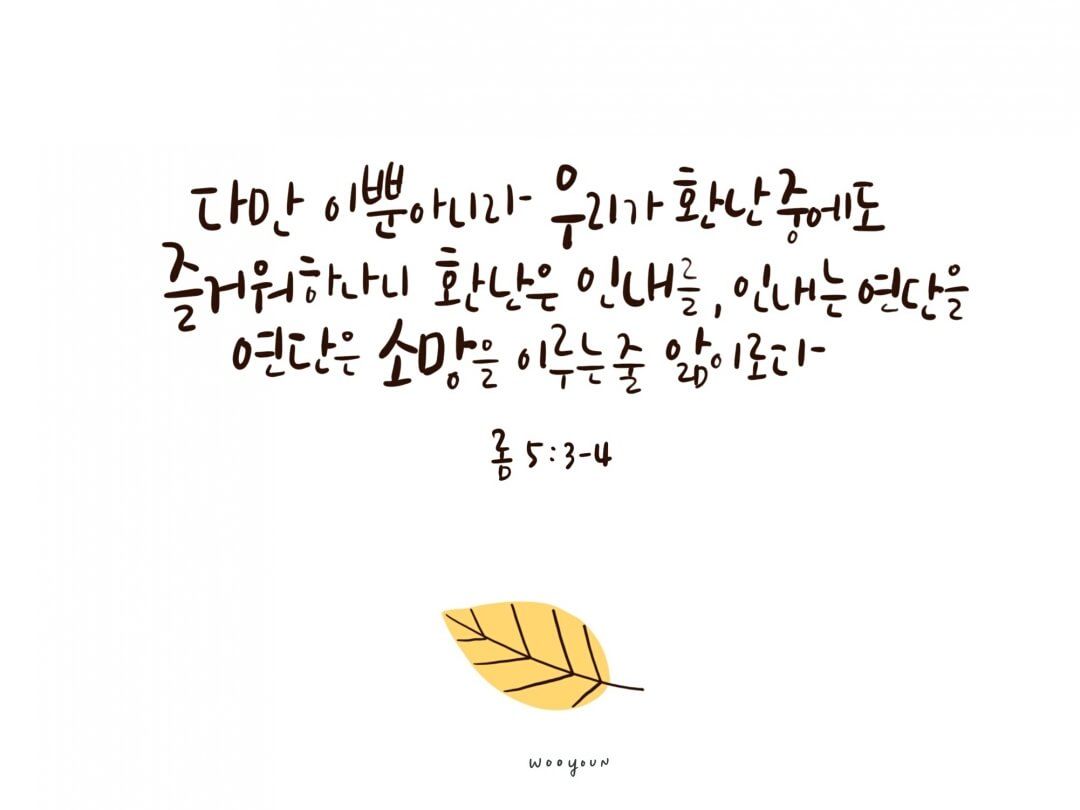 다만 이뿐아니라 우리가 환난중에도
즐거워하나니 환난은 인내를, 인내는 연단을
연단은 소망을 이루는줄 앎이로다
롬 5:3-4
wooyoun